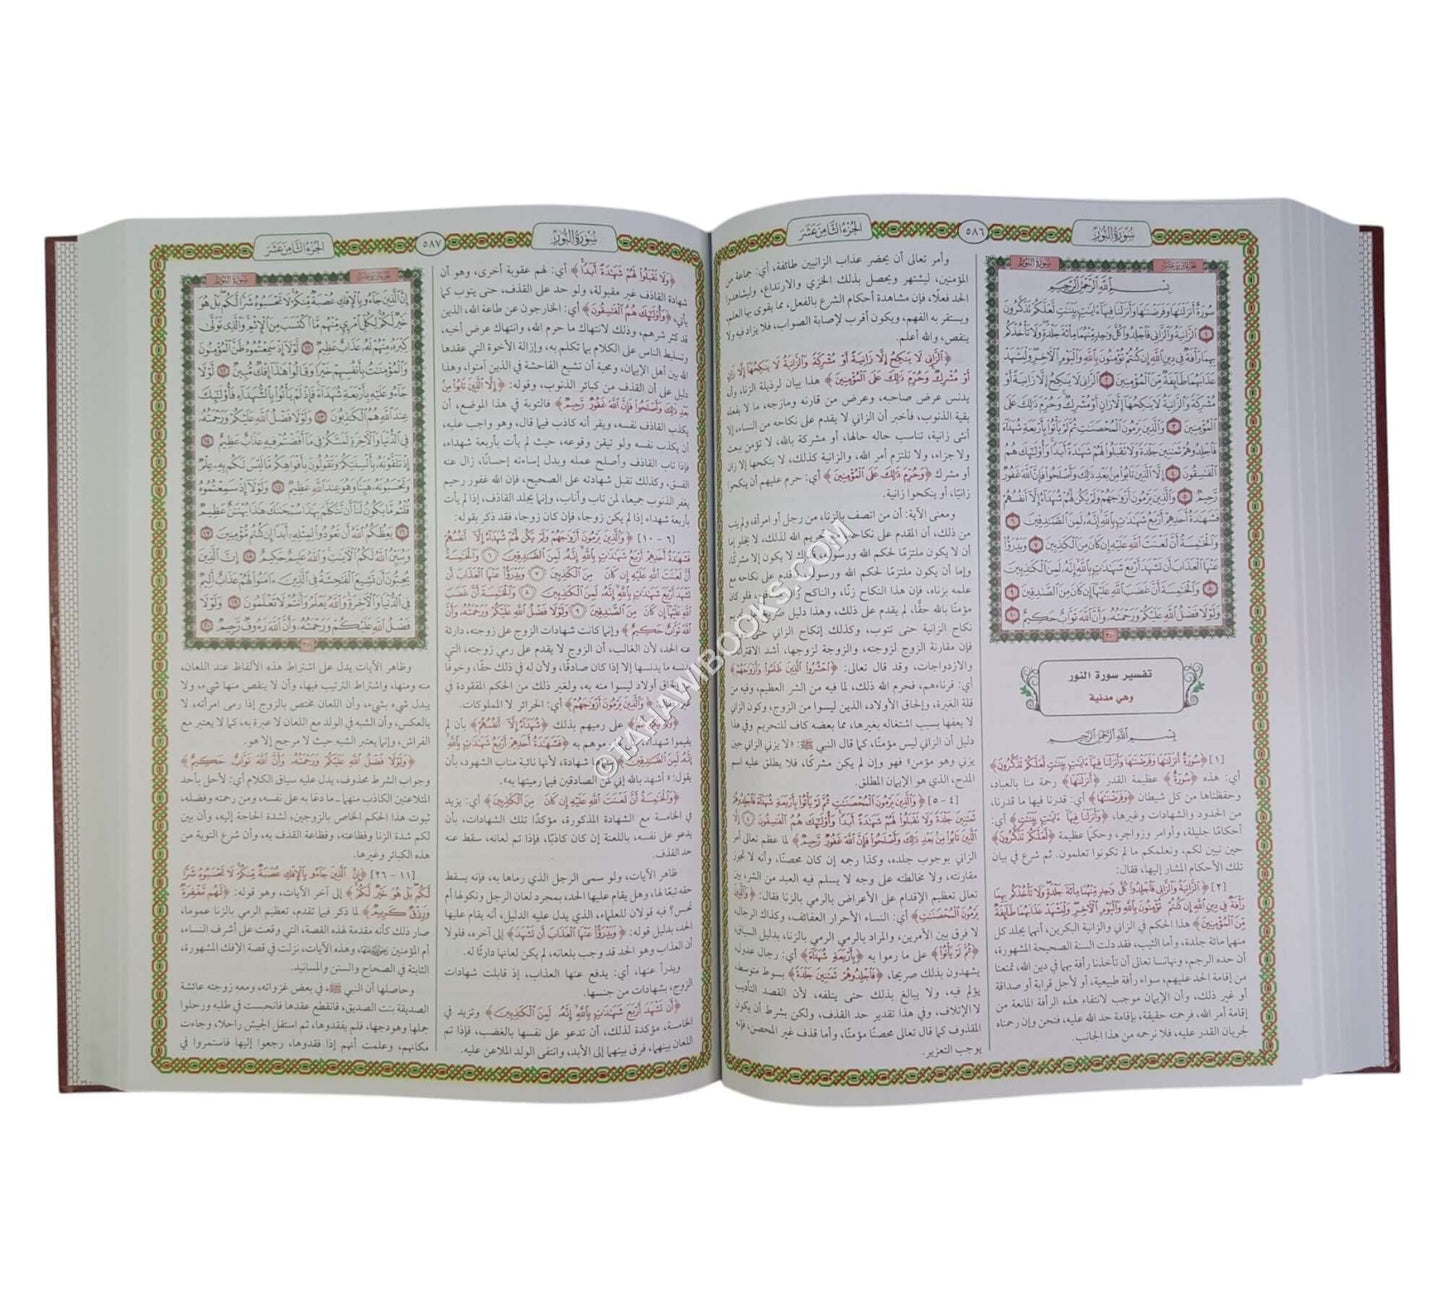 سورة النور
٥٨٦
الجزء الثامن عشر
سورة النور
بسم الله الرحمن الرحيم
سُورَةٌ أَنزَلْنَاهَا وَفَرَضْنَاهَا وَأَنزَلْنَا فِيهَا آيَاتٍ بَيِّنَاتٍ لَعَلَّكُمْ تَذَكَّرُونَ
١ الزَّانِيَةُ وَالزَّانِي فَاجْلِدُوا كُلَّ وَاحِدٍ مِنْهُمَا مِائَةَ جَلْدَةٍ وَلَا تَأْخُذْكُمْ
بِهِمَا رَأْفَةٌ فِي دِينِ اللَّهِ إِنْ كُنْتُمْ تُؤْمِنُونَ بِاللَّهِ وَالْيَوْمِ الْآخِرِ وَلْيَشْهَدْ
عَذَابَهُمَا طَائِفَةٌ مِنَ الْمُؤْمِنِينَ ٢ الزَّانِي لَا يَنْكِحُ إِلَّا زَانِيَةً أَوْ
مُشْرِكَةً وَالزَّانِيَةُ لَا يَنْكِحُهَا إِلَّا زَانٍ أَوْ مُشْرِكٌ وَحُرِّمَ ذَلِكَ عَلَى
الْمُؤْمِنِينَ ٣ وَالَّذِينَ يَرْمُونَ الْمُحْصَنَاتِ ثُمَّ لَمْ يَأْتُوا بِأَرْبَعَةِ شُهَدَاءَ
فَاجْلِدُوهُمْ ثَمَانِينَ جَلْدَةً وَلَا تَقْبَلُوا لَهُمْ شَهَادَةً أَبَدًا وَأُولَئِكَ هُمُ
الْفَاسِقُونَ ٤ إِلَّا الَّذِينَ تَابُوا مِنْ بَعْدِ ذَلِكَ وَأَصْلَحُوا فَإِنَّ اللَّهَ غَفُورٌ
رَحِيمٌ ٥ وَالَّذِينَ يَرْمُونَ أَزْوَاجَهُمْ وَلَمْ يَكُنْ لَهُمْ شُهَدَاءُ إِلَّا أَنْفُسُهُمْ
فَشَهَادَةُ أَحَدِهِمْ أَرْبَعُ شَهَادَاتٍ بِاللَّهِ إِنَّهُ لَمِنَ الصَّادِقِينَ ٦
وَالْخَامِسَةُ أَنَّ لَعْنَتَ اللَّهِ عَلَيْهِ إِنْ كَانَ مِنَ الْكَاذِبِينَ ٧ وَيَدْرَأُ
عَنْهَا الْعَذَابَ أَنْ تَشْهَدَ أَرْبَعَ شَهَادَاتٍ بِاللَّهِ إِنَّهُ لَمِنَ الْكَاذِبِينَ
٨ وَالْخَامِسَةَ أَنَّ غَضَبَ اللَّهِ عَلَيْهَا إِنْ كَانَ مِنَ الصَّادِقِينَ ٩
وَلَوْلَا فَضْلُ اللَّهِ عَلَيْكُمْ وَرَحْمَتُهُ وَأَنَّ اللَّهَ تَوَّابٌ حَكِيمٌ ١٠
تفسير سورة النور
وهي مدنية
بسم الله الرحمن الرحيم
[١] ﴿سُورَةٌ أَنزَلْنَاهَا وَفَرَضْنَاهَا وَأَنزَلْنَا فِيهَا آيَاتٍ بَيِّنَاتٍ لَعَلَّكُمْ تَذَكَّرُونَ﴾
أي: هذه ﴿سُورَةٌ﴾ عظيمة القدر ﴿أَنزَلْنَاهَا﴾ رحمة منا بالعباد
وحفظناها من كل شيطان ﴿وَفَرَضْنَاهَا﴾ أي: قدرنا فيها ما قدرنا،
من الحدود والشهادات وغيرها، ﴿وَأَنزَلْنَا فِيهَا آيَاتٍ بَيِّنَاتٍ﴾ أي:
أحكامًا جليلة، وأوامر وزواجر، وحكما عظيمة ﴿لَعَلَّكُمْ تَذَكَّرُونَ﴾
حين نبين لكم، ونعلمكم ما لم تكونوا تعلمون. ثم شرع في بيان
تلك الأحكام المشار إليها، فقال:
[٢] ﴿الزَّانِيَةُ وَالزَّانِي فَاجْلِدُوا كُلَّ وَاحِدٍ مِنْهُمَا مِائَةَ جَلْدَةٍ وَلَا تَأْخُذْكُمْ بِهِمَا
رَأْفَةٌ فِي دِينِ اللَّهِ إِنْ كُنْتُمْ تُؤْمِنُونَ بِاللَّهِ وَالْيَوْمِ الْآخِرِ وَلْيَشْهَدْ عَذَابَهُمَا طَائِفَةٌ
مِنَ الْمُؤْمِنِينَ﴾ هذا الحكم في الزاني والزانية البكرين، أنهما يجلد كل
منهما مائة جلدة، وأما الثيب، فقد دلت السنة الصحيحة المشهورة،
أن حده الرجم، ونهانا تعالى أن تأخذنا رأفة بهما في دين الله، تمنعنا
من إقامة الحد عليهم، سواء رأفة طبيعية، أو لأجل قرابة أو صداقة
أو غير ذلك، وأن الإيمان موجب لانتفاء هذه الرأفة المانعة من
إقامة أمر الله، فرحمته حقيقة، بإقامة حد الله عليه، فنحن وإن رحمناه
لجريان القدر عليه، فلا نرحمه من هذا الجانب.
وأمر تعالى أن يحضر عذاب الزانيين طائفة، أي: جماعة من
المؤمنين، ليشتهر ويحصل بذلك الخزي والارتداع، وليشاهدوا
الحد فعلًا، فإن مشاهدة أحكام الشرع بالفعل، مما يقوى بها العلم،
ويستقر به الفهم، ويكون أقرب لإصابة الصواب، فلا يزاد فيه ولا
ينقص، والله أعلم.
﴿الزَّانِي لَا يَنْكِحُ إِلَّا زَانِيَةً أَوْ مُشْرِكَةً وَالزَّانِيَةُ لَا يَنْكِحُهَا إِلَّا زَانٍ
أَوْ مُشْرِكٌ وَحُرِّمَ ذَلِكَ عَلَى الْمُؤْمِنِينَ﴾ هذا بيان لرذيلة الزنا، وأنه
يدنس عرض صاحبه، وعرض من قارنه ومازجه، ما لا يفعله
بقية الذنوب، فأخبر أن الزاني لا يقدم على نكاحه من النساء، إلا
أنثى زانية، تناسب حاله حالها، أو مشركة بالله، لا تؤمن ببعث
ولا جزاء، ولا تلتزم أمر الله، والزانية كذلك، لا ينكحها إلا زان
أو مشرك ﴿وَحُرِّمَ ذَلِكَ عَلَى الْمُؤْمِنِينَ﴾ أي: حرم عليهم أن ينكحوا
زانيًا، أو ينكحوا زانية.
ومعنى الآية: أن من اتصف بالزنا، من رجل أو امرأة، ولم يتب
من ذلك، أن المقدم على نكاحه مع تحريم الله لذلك، لا يخلو
أن لا يكون ملتزمًا لحكم الله ورسوله، فذاك لا يكون إلا مشركًا،
وإما أن يكون ملتزمًا لحكم الله ورسوله، فأقدم على نكاحه مع
علمه بزناه، فإن هذا النكاح زنًا، والناكح زان، فلو كان
مؤمنًا بالله حقًا، لم يقدم على ذلك، وهذا دليل
نكاح الزانية حتى تتوب، وكذلك إنكاح الزاني حتى
فإن مقارنة الزوج لزوجته، والزوجة لزوجها، أشد الاقترانات
والازدواجات، وقد قال تعالى: ﴿احْشُرُوا الَّذِينَ ظَلَمُوا وَأَزْوَاجَهُمْ﴾
أي: قرناءهم، فحرم الله ذلك، لما فيه من الشر العظيم، وفيه من
قلة الغيرة، وإلحاق الأولاد، الذين ليسوا من الزوج، وكون الزاني
لا يعفها بسبب اشتغاله بغيرها، مما بعضه كاف للتحريم وفي هذا
دليل أن الزاني ليس مؤمنًا، كما قال النبي ﷺ: «لا يزني الزاني حين
يزني وهو مؤمن» فهو وإن لم يكن مشركًا، فلا يطلق عليه اسم
المدح، الذي هو الإيمان المطلق.
[٤ - ٥] ﴿وَالَّذِينَ يَرْمُونَ الْمُحْصَنَاتِ ثُمَّ لَمْ يَأْتُوا بِأَرْبَعَةِ شُهَدَاءَ فَاجْلِدُوهُمْ
ثَمَانِينَ جَلْدَةً وَلَا تَقْبَلُوا لَهُمْ شَهَادَةً أَبَدًا وَأُولَئِكَ هُمُ الْفَاسِقُونَ ٤ إِلَّا
الَّذِينَ تَابُوا مِنْ بَعْدِ ذَلِكَ وَأَصْلَحُوا فَإِنَّ اللَّهَ غَفُورٌ رَحِيمٌ﴾ لما عظم تعالى أمر
الزاني بوجوب جلده، وكذا رجمه إن كان محصنًا، وأنه لا تجوز
مقارنته، ولا مخالطته على وجه لا يسلم فيه العبد من الشر، بين
تعالى تعظيم الإقدام على الأعراض بالرمي بالزنا فقال: ﴿وَالَّذِينَ
يَرْمُونَ الْمُحْصَنَاتِ﴾ أي: النساء الأحرار العفائف، وكذاك الرجال،
لا فرق بين الأمرين، والمراد بالرمي الرمي بالزنا، بدليل السياق،
﴿ثُمَّ لَمْ يَأْتُوا﴾ على ما رموا به ﴿بِأَرْبَعَةِ شُهَدَاءَ﴾ أي: رجال عدول،
يشهدون بذلك صريحًا، ﴿فَاجْلِدُوهُمْ ثَمَانِينَ جَلْدَةً﴾ بسوط متوسط،
يؤلم فيه، ولا يبالغ بذلك حتى يتلفه، لأن القصد التأديب
لا الإتلاف، وفي هذا تقدير حد القذف، ولكن بشرط أن يكون
المقذوف كما قال تعالى محصنًا مؤمنًا، وأما قذف غير المحصن، فإنه
يوجب التعزير.
سورة النور
٥٨٧
الجزء الثامن عشر
﴿وَلَا تَقْبَلُوا لَهُمْ شَهَادَةً أَبَدًا﴾ أي: لهم عقوبة أخرى، وهو أن
شهادة القاذف غير مقبولة، ولو حد على القذف، حتى يتوب كما
يأتي، ﴿وَأُولَئِكَ هُمُ الْفَاسِقُونَ﴾ أي: الخارجون عن طاعة الله، الذين
قد كثر شرهم، وذلك لانتهاك ما حرم الله، وانتهاك عرض أخيه،
وتسليط الناس على الكلام بما تكلم به، وإزالة الأخوة التي عقدها
الله بين أهل الإيمان، ومحبة أن تشيع الفاحشة في الذين آمنوا، وهذا
دليل على أن القذف من كبائر الذنوب، وقوله: ﴿إِلَّا الَّذِينَ تَابُوا مِنْ
بَعْدِ ذَلِكَ وَأَصْلَحُوا فَإِنَّ اللَّهَ غَفُورٌ رَحِيمٌ﴾ فالتوبة في هذا الموضع، أن
يكذب القاذف نفسه، ويقر أنه كاذب فيما قال، وهو واجب عليه،
أن يكذب نفسه ولو تيقن وقوعه، حيث لم يأت بأربعة شهداء،
فإذا تاب القاذف وأصلح عمله وبدل إساءته إحسانًا، زال عنه
الفسق، وكذلك تقبل شهادته على الصحيح، فإن الله غفور رحيم
يغفر الذنوب جميعا، لمن تاب وأناب، وإنما يجلد القاذف، إذا لم يأت
بأربعة شهداء إذا لم يكن زوجا، فإن كان زوجا، فقد ذكر بقوله:
[٦ - ١٠] ﴿وَالَّذِينَ يَرْمُونَ أَزْوَاجَهُمْ وَلَمْ يَكُنْ لَهُمْ شُهَدَاءُ إِلَّا أَنْفُسُهُمْ
فَشَهَادَةُ أَحَدِهِمْ أَرْبَعُ شَهَادَاتٍ بِاللَّهِ إِنَّهُ لَمِنَ الصَّادِقِينَ ٦ وَالْخَامِسَةُ
أَنَّ لَعْنَتَ اللَّهِ عَلَيْهِ إِنْ كَانَ مِنَ الْكَاذِبِينَ ٧ وَيَدْرَأُ عَنْهَا الْعَذَابَ أَنْ
تَشْهَدَ أَرْبَعَ شَهَادَاتٍ بِاللَّهِ إِنَّهُ لَمِنَ الْكَاذِبِينَ ٨ وَالْخَامِسَةَ أَنَّ غَضَبَ
اللَّهِ عَلَيْهَا إِنْ كَانَ مِنَ الصَّادِقِينَ ٩ وَلَوْلَا فَضْلُ اللَّهِ عَلَيْكُمْ وَرَحْمَتُهُ وَأَنَّ
اللَّهَ تَوَّابٌ حَكِيمٌ﴾ وإنما كانت شهادات الزوج على زوجته، دارئة
عنه الحد، لأن الغالب، أن الزوج لا يقدم على رمي زوجته، التي
يدنسه ما يدنسها إلا إذا كان صادقًا، ولأن له في ذلك حقًا، وخوفًا
من إلحاق أولاد ليسوا منه به، ولغير ذلك من الحكم المفقودة في
غيره ﴿وَالَّذِينَ يَرْمُونَ أَزْوَاجَهُمْ﴾ أي: الحرائر لا المملوكات.
على رميهم بذلك ﴿شُهَدَاءُ إِلَّا أَنْفُسُهُمْ﴾ بأن لم
يقيموا شهداء، رموهم به ﴿فَشَهَادَةُ أَحَدِهِمْ أَرْبَعُ شَهَادَاتٍ بِاللَّهِ
إِنَّهُ لَمِنَ الصَّادِقِينَ﴾ شهادة، لأنها نائبة مناب الشهود، بأن
يقول: «أشهد بالله إني لمن الصادقين فيما رميتها به».
﴿وَالْخَامِسَةُ أَنَّ لَعْنَتَ اللَّهِ عَلَيْهِ إِنْ كَانَ مِنَ الْكَاذِبِينَ﴾ أي: يزيد
في الخامسة مع الشهادة المذكورة، مؤكدًا تلك الشهادات، بأن
يدعو على نفسه، باللعنة إن كان كاذبًا، فإذا تم لعانه، سقط عنه
حد القذف.
ظاهر الآيات، ولو سمى الرجل الذي رماها به، فإنه يسقط
حقه تبعًا لها، وهل يقام عليها الحد، بمجرد لعان الرجل ونكولها أم
تحبس؟ فيه قولان للعلماء، الذي يدل عليه الدليل، أنه يقام عليها
الحد، بدليل قوله: ﴿وَيَدْرَأُ عَنْهَا الْعَذَابَ أَنْ تَشْهَدَ﴾ إلى آخره، فلولا
أن العذاب وهو الحد قد وجب بلعانه، لم يكن لعانها دارئًا له.
ويدرأ عنها، أي: يدفع عنها العذاب، إذ قابلت شهادات
الزوج، بشهادات من جنسها.
﴿أَنْ تَشْهَدَ أَرْبَعَ شَهَادَاتٍ بِاللَّهِ إِنَّهُ لَمِنَ الْكَاذِبِينَ﴾ وتزيد في
الخامسة، مؤكدة لذلك، أن تدعو على نفسها بالغضب، فإذا تم
اللعان بينهما، فرق بينهما إلى الأبد، وانتفى الولد الملاعن عليه.
سورة النور
إِنَّ الَّذِينَ جَاءُوا بِالْإِفْكِ عُصْبَةٌ مِنْكُمْ لَا تَحْسَبُوهُ شَرًّا لَكُمْ بَلْ هُوَ
خَيْرٌ لَكُمْ لِكُلِّ امْرِئٍ مِنْهُمْ مَا اكْتَسَبَ مِنَ الْإِثْمِ وَالَّذِي تَوَلَّى
كِبْرَهُ مِنْهُمْ لَهُ عَذَابٌ عَظِيمٌ ١١ لَوْلَا إِذْ سَمِعْتُمُوهُ ظَنَّ الْمُؤْمِنُونَ
وَالْمُؤْمِنَاتُ بِأَنْفُسِهِمْ خَيْرًا وَقَالُوا هَذَا إِفْكٌ مُبِينٌ ١٢ لَوْلَا
جَاءُوا عَلَيْهِ بِأَرْبَعَةِ شُهَدَاءَ فَإِذْ لَمْ يَأْتُوا بِالشُّهَدَاءِ فَأُولَئِكَ
عِنْدَ اللَّهِ هُمُ الْكَاذِبُونَ ١٣ وَلَوْلَا فَضْلُ اللَّهِ عَلَيْكُمْ وَرَحْمَتُهُ
فِي الدُّنْيَا وَالْآخِرَةِ لَمَسَّكُمْ فِي مَا أَفَضْتُمْ فِيهِ عَذَابٌ عَظِيمٌ ١٤
إِذْ تَلَقَّوْنَهُ بِأَلْسِنَتِكُمْ وَتَقُولُونَ بِأَفْوَاهِكُمْ مَا لَيْسَ لَكُمْ بِهِ عِلْمٌ
وَتَحْسَبُونَهُ هَيِّنًا وَهُوَ عِنْدَ اللَّهِ عَظِيمٌ ١٥ وَلَوْلَا إِذْ سَمِعْتُمُوهُ
قُلْتُمْ مَا يَكُونُ لَنَا أَنْ نَتَكَلَّمَ بِهَذَا سُبْحَانَكَ هَذَا بُهْتَانٌ عَظِيمٌ
١٦ يَعِظُكُمُ اللَّهُ أَنْ تَعُودُوا لِمِثْلِهِ أَبَدًا إِنْ كُنْتُمْ مُؤْمِنِينَ ١٧
وَيُبَيِّنُ اللَّهُ لَكُمُ الْآيَاتِ وَاللَّهُ عَلِيمٌ حَكِيمٌ ١٨ إِنَّ الَّذِينَ
يُحِبُّونَ أَنْ تَشِيعَ الْفَاحِشَةُ فِي الَّذِينَ آمَنُوا لَهُمْ عَذَابٌ أَلِيمٌ
فِي الدُّنْيَا وَالْآخِرَةِ وَاللَّهُ يَعْلَمُ وَأَنْتُمْ لَا تَعْلَمُونَ ١٩ وَلَوْلَا
فَضْلُ اللَّهِ عَلَيْكُمْ وَرَحْمَتُهُ وَأَنَّ اللَّهَ رَءُوفٌ رَحِيمٌ ٢٠
وظاهر الآيات يدل على اشتراط هذه الألفاظ عند اللعان،
منه ومنها، واشتراط الترتيب فيها، وأن لا ينقص منها شيء، ولا
يبدل شيء بشيء، وأن اللعان مختص بالزوج إذا رمى امرأته، لا
بالعكس، وأن الشبه في الولد مع اللعان لا عبرة به، كما لا يعتبر مع
الفراش، وإنما يعتبر الشبه حيث لا مرجح إلا هو.
﴿وَلَوْلَا فَضْلُ اللَّهِ عَلَيْكُمْ وَرَحْمَتُهُ وَأَنَّ اللَّهَ تَوَّابٌ حَكِيمٌ﴾
وجواب الشرط محذوف، يدل عليه سياق الكلام أي: لأحل بأحد
المتلاعنين الكاذب منهما، ما دعا به على نفسه، ومن رحمته وفضله،
ثبوت هذا الحكم الخاص بالزوجين، لشدة الحاجة إليه، وأن بين
لكم شدة الزنا وفظاعته، وفظاعة القذف به، وأن شرع التوبة من
هذه الكبائر وغيرها.
[١١ - ٢٦] ﴿إِنَّ الَّذِينَ جَاءُوا بِالْإِفْكِ عُصْبَةٌ مِنْكُمْ لَا تَحْسَبُوهُ شَرًّا
لَكُمْ بَلْ هُوَ خَيْرٌ لَكُمْ﴾ إلى آخر الآيات، وهو قوله: ﴿لَهُمْ مَغْفِرَةٌ
وَرِزْقٌ كَرِيمٌ﴾ لما ذكر فيما تقدم، تعظيم الرمي بالزنا عموما،
صار ذلك كأنه مقدمة لهذه القصة، التي وقعت على أشرف النساء،
أم المؤمنين رضي الله عنها، وهذه الآيات، نزلت في قصة الإفك المشهورة،
الثابتة في الصحاح والسنن والمسانيد.
وحاصلها أن النبي ﷺ، في بعض غزواته، ومعه زوجته عائشة
الصديقة بنت الصديق، فانقطع عقدها فانحبست في طلبه ورحلوا
جملها وهودجها، فلم يفقدوها، ثم استقل الجيش راحلا، وجاءت
مكانهم، وعلمت أنهم إذا فقدوها، رجعوا إليها فاستمروا في
© TAHAWIBOOKS.COM